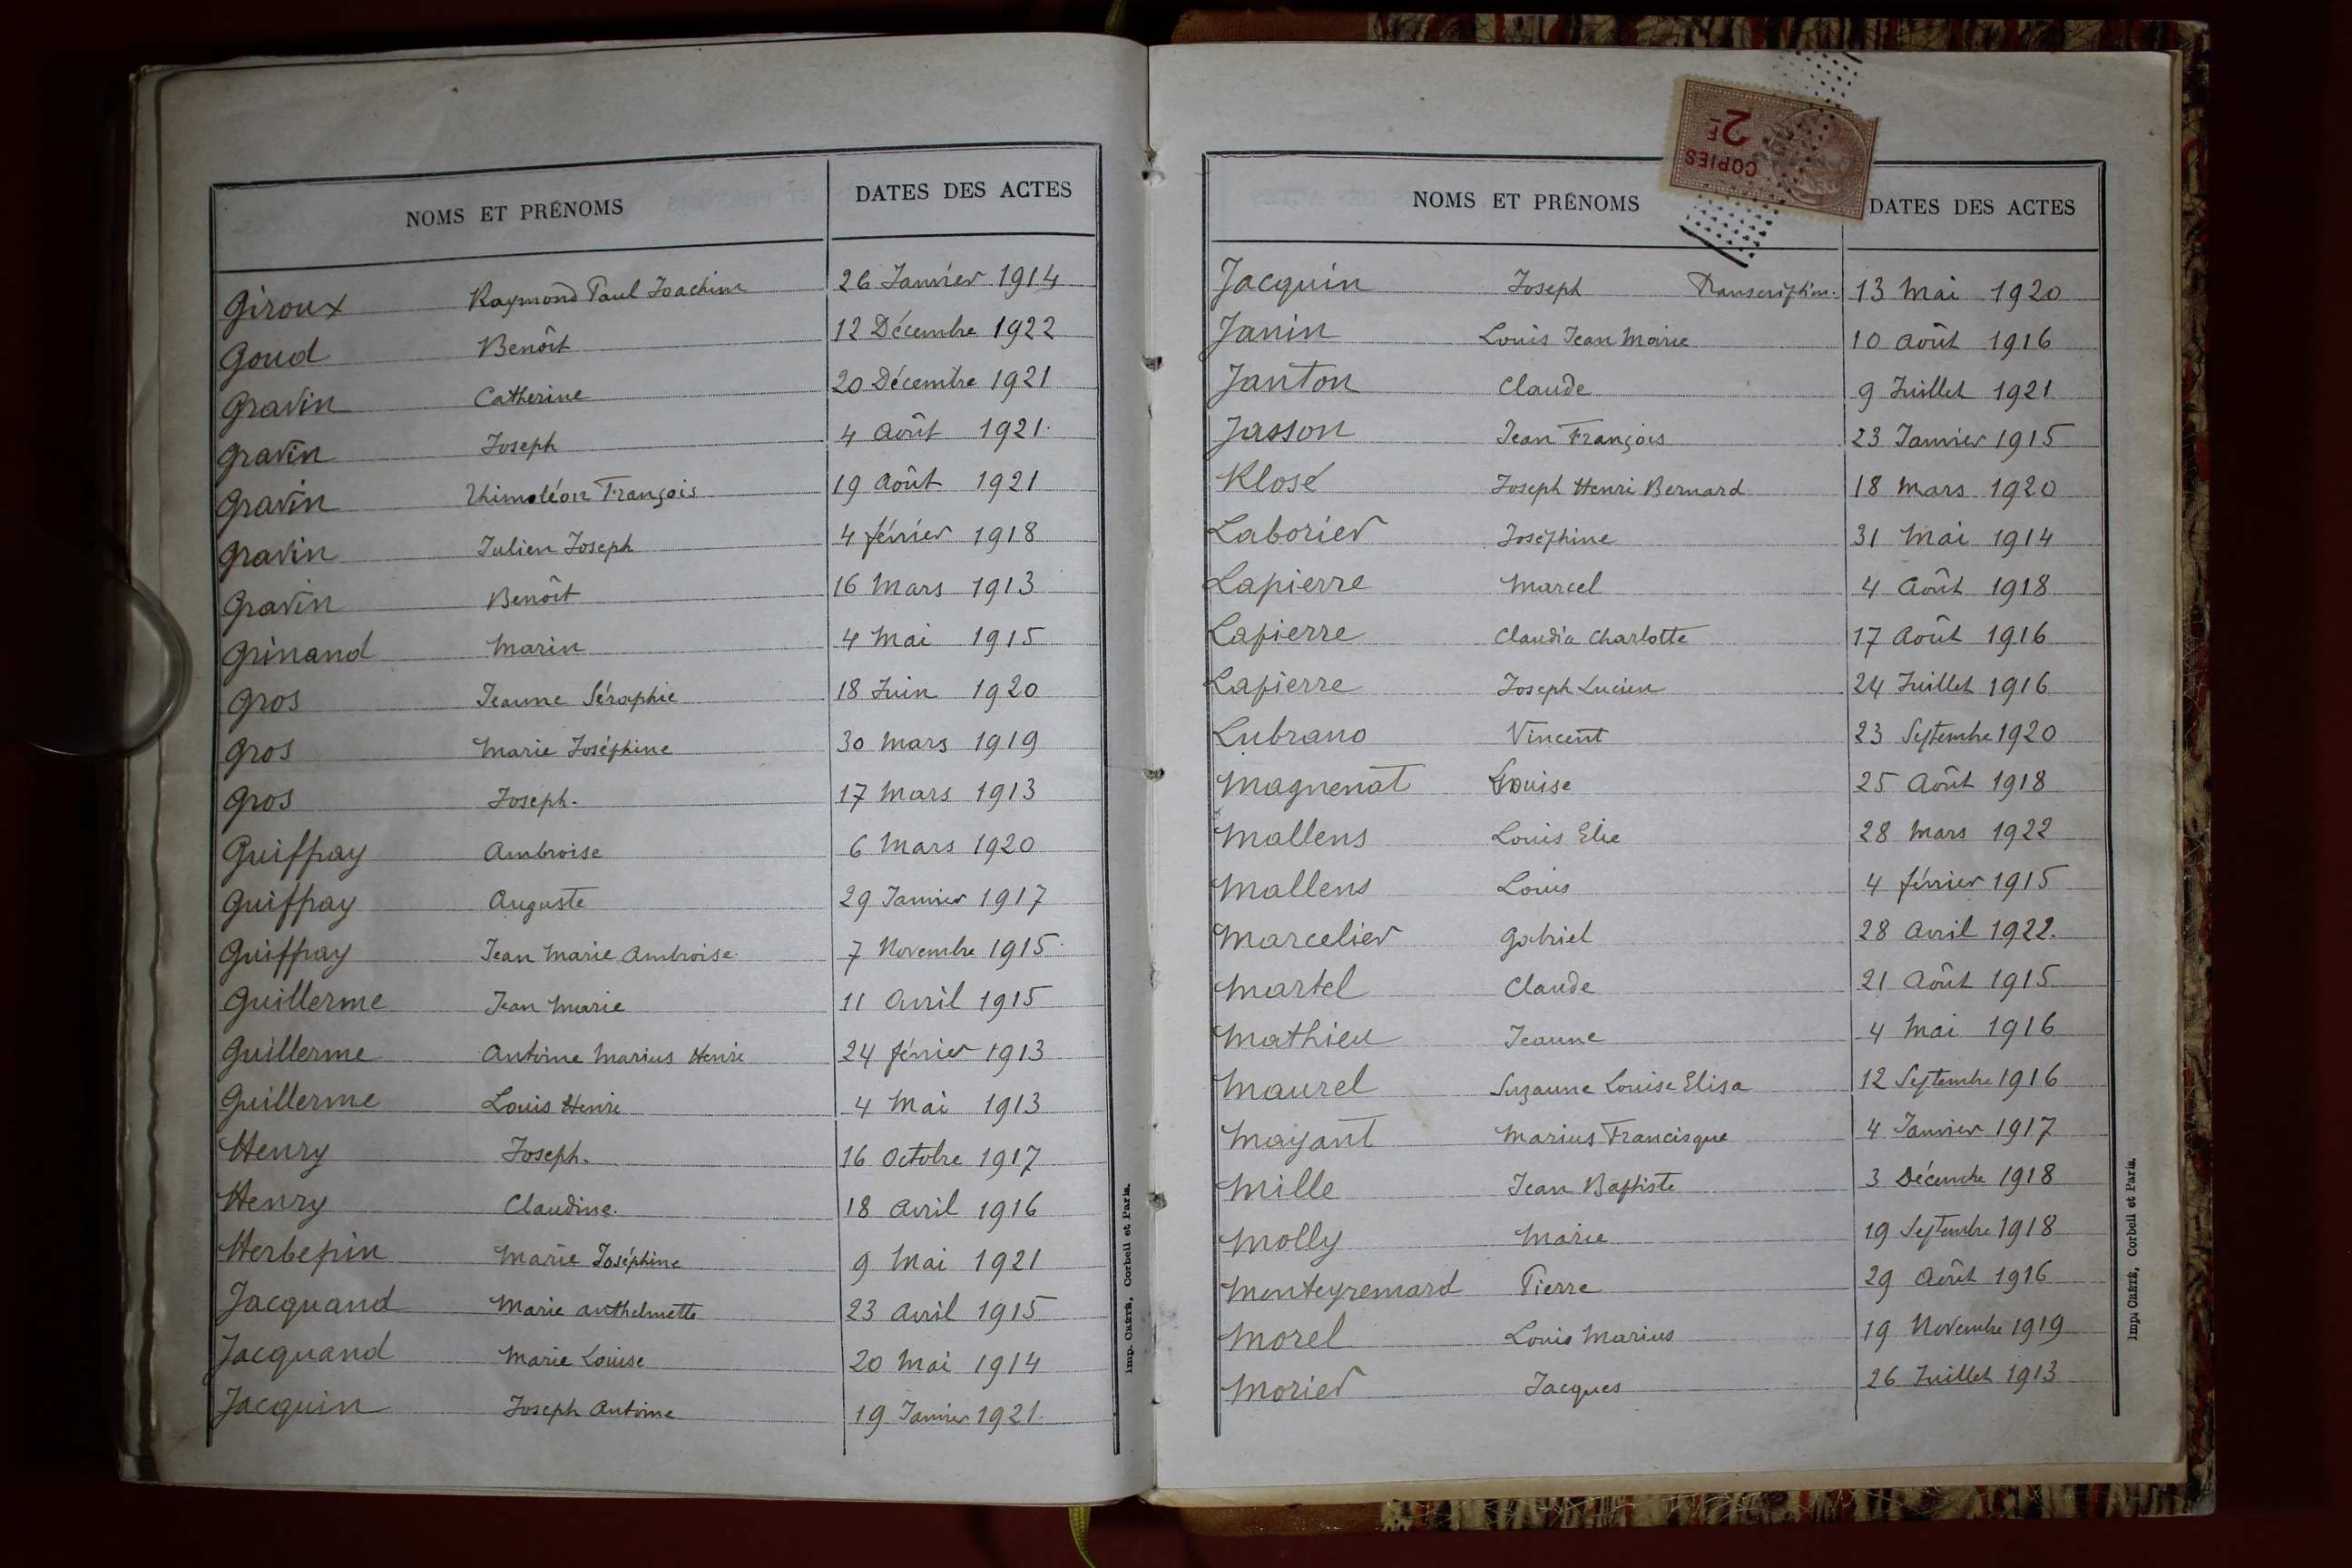 NOMS ET PRÉNOMS DATES DES ACTES
Giroux Raymond Paul Joachim 26 Janvier 1914
Goud Benoît 12 Décembre 1922
Gravin Catherine 20 Décembre 1921
Gravin Joseph 4 Août 1921
Gravin Thimoléon François 19 Août 1921
Gravin Julien Joseph 4 février 1918
Gravin Benoît 16 Mars 1913
Grinand Marin 4 Mai 1915
Gros Jeanne Séraphie 18 Juin 1920
Gros Marie Joséphine 30 Mars 1919
Gros Joseph. 17 Mars 1913
Guiffray Ambroise 6 Mars 1920
Guiffray Auguste 29 Janvier 1917
Guiffray Jean Marie Ambroise 7 Novembre 1915
Guillerme Jean Marie 11 Avril 1915
Guillerme Antoine Marius Henri 24 février 1913
Guillerme Louis Henri 4 Mai 1913
Henry Joseph. 16 Octobre 1917
Henry Claudine. 18 Avril 1916
Herbepin Marie Joséphine 9 Mai 1921
Jacquand Marie Anthelmette 23 Avril 1915
Jacquand Marie Louise 20 Mai 1914
Jacquin Joseph Antoine 19 Janvier 1921
Imp. CRÉTÉ, Corbeil et Paris.
COPIES
2F
NOMS ET PRÉNOMS DATES DES ACTES
Jacquin Joseph Transcription. 13 Mai 1920
Janin Louis Jean Marie 10 Août 1916
Janton Claude 9 Juillet 1921
Jasson Jean François 23 Janvier 1915
Klosé Joseph Henri Bernard 18 Mars 1920
Laborier Joséphine 31 Mai 1914
Lapierre Marcel 4 Août 1918
Lapierre Claudia Charlotte 17 Août 1916
Lapierre Joseph Lucien 24 Juillet 1916
Lubrano Vincent 23 Septembre 1920
Magnenat Louise 25 Août 1918
Mallens Louis Elie 28 Mars 1922
Mallens Louis 4 février 1915
Marcelier Gabriel 28 Avril 1922.
Martel Claude 21 Août 1915
Mathieu Jeanne 4 Mai 1916
Maurel Suzanne Louise Elisa 12 Septembre 1916
Mayant Marius Francisque 4 Janvier 1917
Mille Jean Baptiste 3 Décembre 1918
Molly Marie 19 Septembre 1918
Monteyremard Pierre 29 Août 1916
Morel Louis Marius 19 Novembre 1919
Morier Jacques 26 Juillet 1913
Imp. CRÉTÉ, Corbeil et Paris.